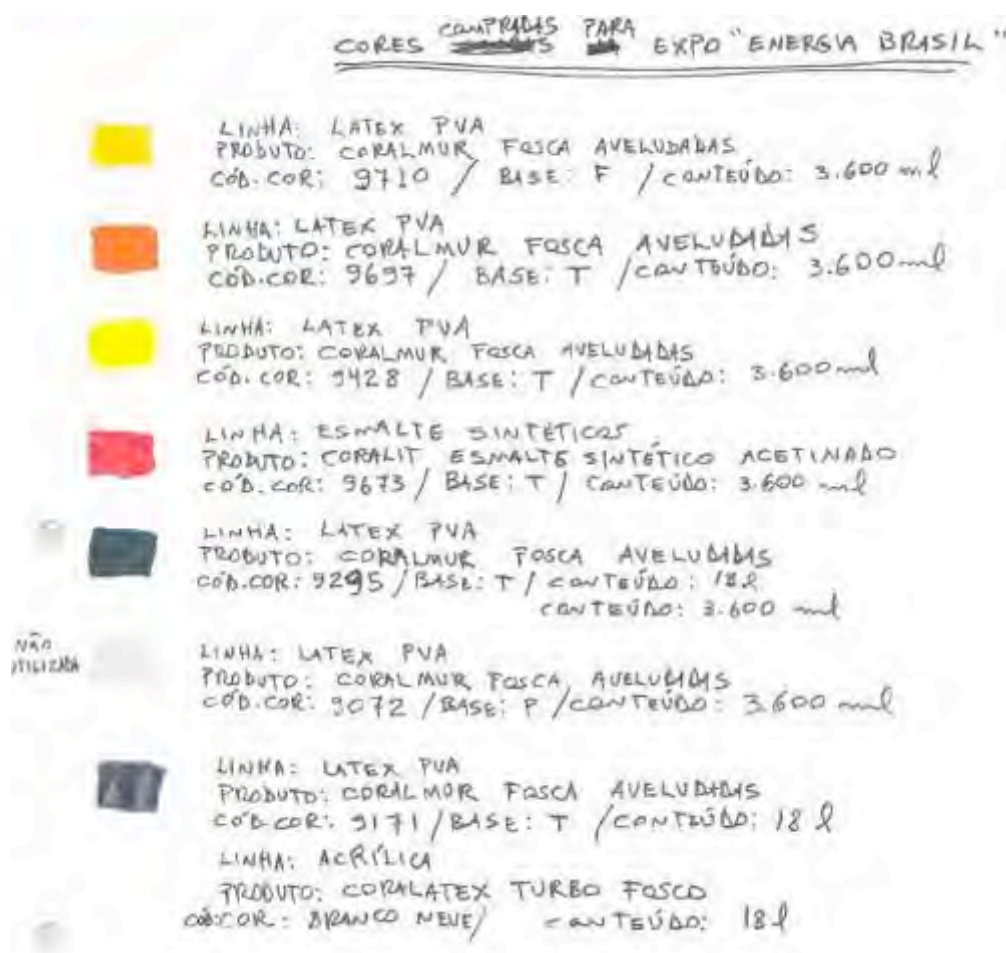 CORES COMPRADAS PARA EXPO "ENERGIA BRASIL"
LINHA: LATEX PVA
PRODUTO: CORALMUR FOSCA AVELUDADAS
CÓD. COR: 9710 / BASE: F / CONTEÚDO: 3.600 ml
LINHA: LATEX PVA
PRODUTO: CORALMUR FOSCA AVELUDADAS
CÓD. COR: 9697 / BASE: T / CONTEÚDO: 3.600 ml
LINHA: LATEX PVA
PRODUTO: CORALMUR FOSCA AVELUDADAS
CÓD. COR: 9428 / BASE: T / CONTEÚDO: 3.600 ml
LINHA: ESMALTE SINTÉTICOS
PRODUTO: CORALIT ESMALTE SINTÉTICO ACETINADO
CÓD. COR: 9673 / BASE: T / CONTEÚDO: 3.600 ml
LINHA: LATEX PVA
PRODUTO: CORALMUR FOSCA AVELUDADAS
CÓD. COR: 9295 / BASE: T / CONTEÚDO: 18 l
CONTEÚDO: 3.600 ml
NÃO
UTILIZADA
LINHA: LATEX PVA
PRODUTO: CORALMUR FOSCA AVELUDADAS
CÓD. COR: 9072 / BASE: P / CONTEÚDO: 3.600 ml
LINHA: LATEX PVA
PRODUTO: CORALMUR FOSCA AVELUDADAS
CÓD. COR: 9171 / BASE: T / CONTEÚDO: 18 l
LINHA: ACRÍLICA
PRODUTO: CORALATEX TURBO FOSCO
CÓD. COR: BRANCO NEVE / CONTEÚDO: 18 l